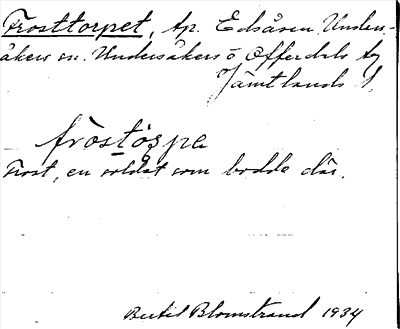 Frosttorpet, tp. Edsåsen Under-
åkers sn. Undersåkers o Offerdals tg
Jämtlands l.
fròstòrpe
Frost, en soldat som bodde där.
Bertil Blomstrand 1934